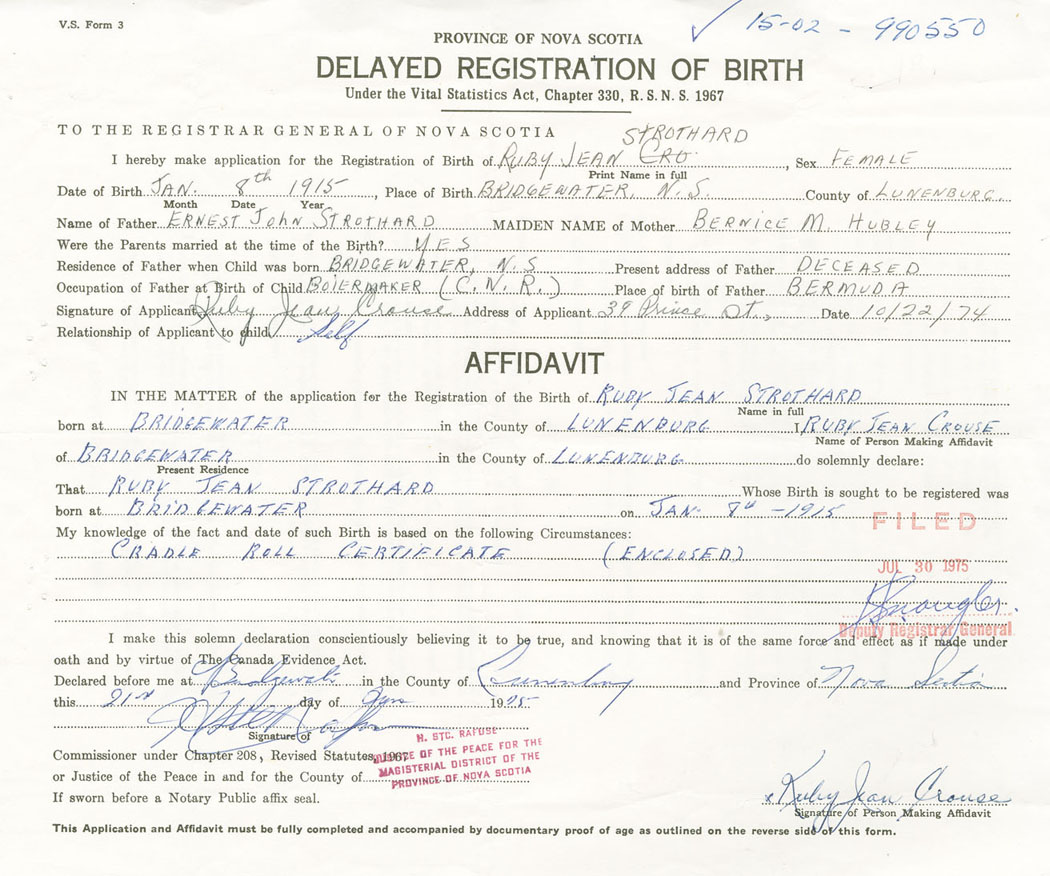 V.S. Form 3
✓ 15-02 - 990550
PROVINCE OF NOVA SCOTIA
DELAYED REGISTRATION OF BIRTH
Under the Vital Statistics Act, Chapter 330, R.S.N.S. 1967
TO THE REGISTRAR GENERAL OF NOVA SCOTIA
STROTHARD
I hereby make application for the Registration of Birth of RUBY JEAN CRO, Sex FEMALE
Print Name in full
Date of Birth JAN. 8th 1915, Place of Birth BRIDGEWATER, N.S. County of LUNENBURG
Month Date Year
Name of Father ERNEST JOHN STROTHARD MAIDEN NAME of Mother BERNICE M. HUBLEY
Were the Parents married at the time of the Birth? YES
Residence of Father when Child was born BRIDGEWATER, N.S Present address of Father DECEASED
Occupation of Father at Birth of Child BOIERMAKER (C.N.R.) Place of birth of Father BERMUDA
Signature of Applicant Ruby Jean Crouse Address of Applicant 39 Prince St., Date 10/22/74
Relationship of Applicant to child Self
AFFIDAVIT
IN THE MATTER of the application for the Registration of the Birth of RUBY JEAN STROTHARD
Name in full
born at BRIDGEWATER in the County of LUNENBURG I RUBY JEAN CROUSE
Name of Person Making Affidavit
of BRIDGEWATER in the County of LUNENBURG do solemnly declare:
Present Residence
That RUBY JEAN STROTHARD Whose Birth is sought to be registered was
born at BRIDGEWATER on JAN. 8th - 1915
FILED
My knowledge of the fact and date of such Birth is based on the following Circumstances:
CRADLE ROLL CERTIFICATE (ENCLOSED)
JUL 30 1975
Deputy Registrar General
I make this solemn declaration conscientiously believing it to be true, and knowing that it is of the same force and effect as if made under
oath and by virtue of The Canada Evidence Act.
Declared before me at Bridgewater in the County of Lunenburg and Province of Nova Scotia
this 21st day of Jan 1975
Signature of
H. STC. RAFUSE
Commissioner under Chapter 208, Revised Statutes, 1967
JUSTICE OF THE PEACE FOR THE
MAGISTERIAL DISTRICT OF THE
or Justice of the Peace in and for the County of
PROVINCE OF NOVA SCOTIA
If sworn before a Notary Public affix seal.
x Ruby Jean Crouse
Signature of Person Making Affidavit
This Application and Affidavit must be fully completed and accompanied by documentary proof of age as outlined on the reverse side of this form.